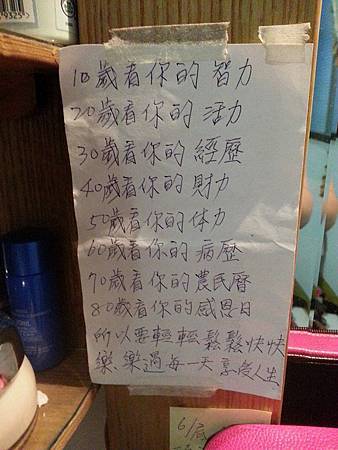 10歲看你的智力
20歲看你的活力
30歲看你的經歷
40歲看你的財力
50歲看你的体力
60歲看你的病歷
70歲看你的農民曆
80歲看你的感恩日
所以要輕輕鬆鬆快快
樂樂過每一天享受人生
6/